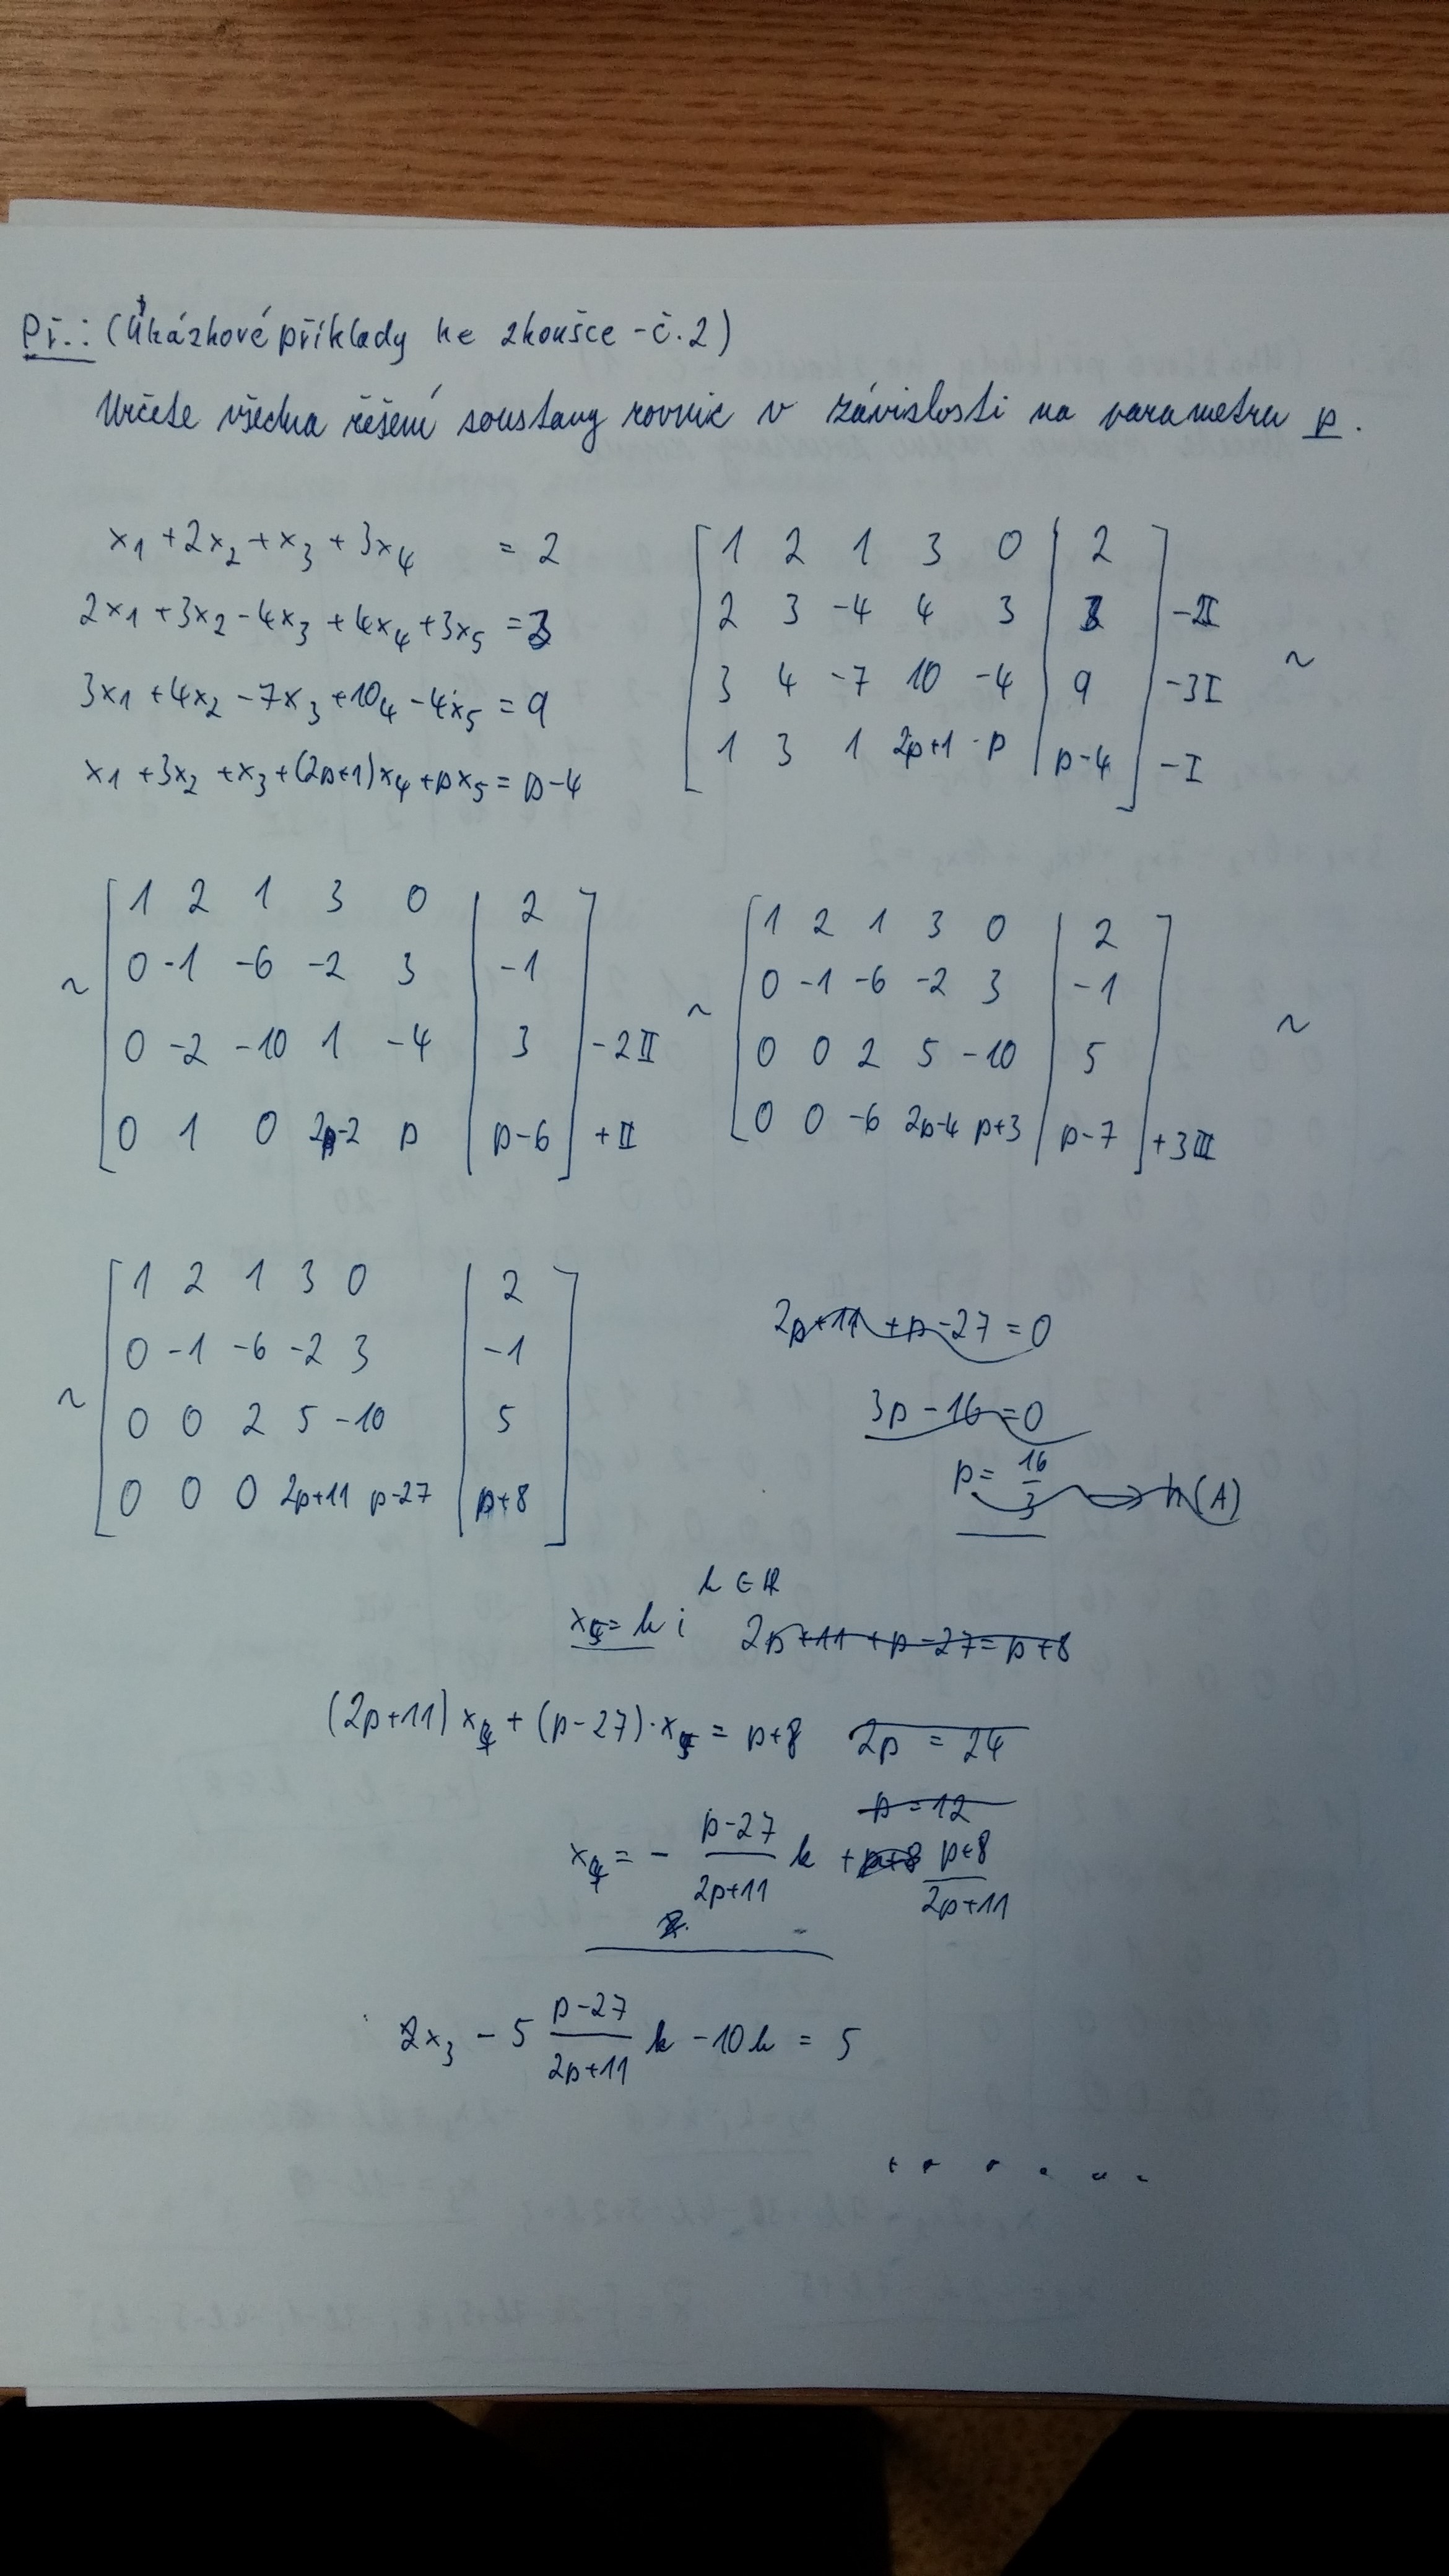 Př.: (Ukázkové příklady ke zkoušce - č. 2)
Určete všechna řešení soustavy rovnic v závislosti na parametru p.
x₁ + 2x₂ + x₃ + 3x₄ = 2
2x₁ + 3x₂ - 4x₃ + 4x₄ + 3x₅ = 3
3x₁ + 4x₂ - 7x₃ + 10₄ - 4x₅ = 9
x₁ + 3x₂ + x₃ + (2p+1)x₄ + px₅ = p-4
1 2 1 3 0 | 2
2 3 -4 4 3 | 3 -2I
3 4 -7 10 -4 | 9 -3I ~
1 3 1 2p+1 p | p-4 -I
1 2 1 3 0 | 2
~ 0 -1 -6 -2 3 | -1
0 -2 -10 1 -4 | 3 -2II
0 1 0 2p-2 p | p-6 +II
1 2 1 3 0 | 2
~ 0 -1 -6 -2 3 | -1
0 0 2 5 -10 | 5 ~
0 0 -6 2p-4 p+3 | p-7 +3III
1 2 1 3 0 | 2
0 -1 -6 -2 3 | -1
~ 0 0 2 5 -10 | 5
0 0 0 2p+11 p-27 | p+8
2p+11 + p-27 = 0
3p - 16 = 0
p = 16/3 ⇒ h(A)
k ∈ R
x₅ = k ; 2p+11 + p-27 = p+8
(2p+11) x₄ + (p-27)·x₅ = p+8 2p = 24
p = 12
x₄ = - (p-27)/(2p+11) k + p+8 (p+8)/(2p+11)
2x₃ - 5 (p-27)/(2p+11) k - 10k = 5
. . . . . .